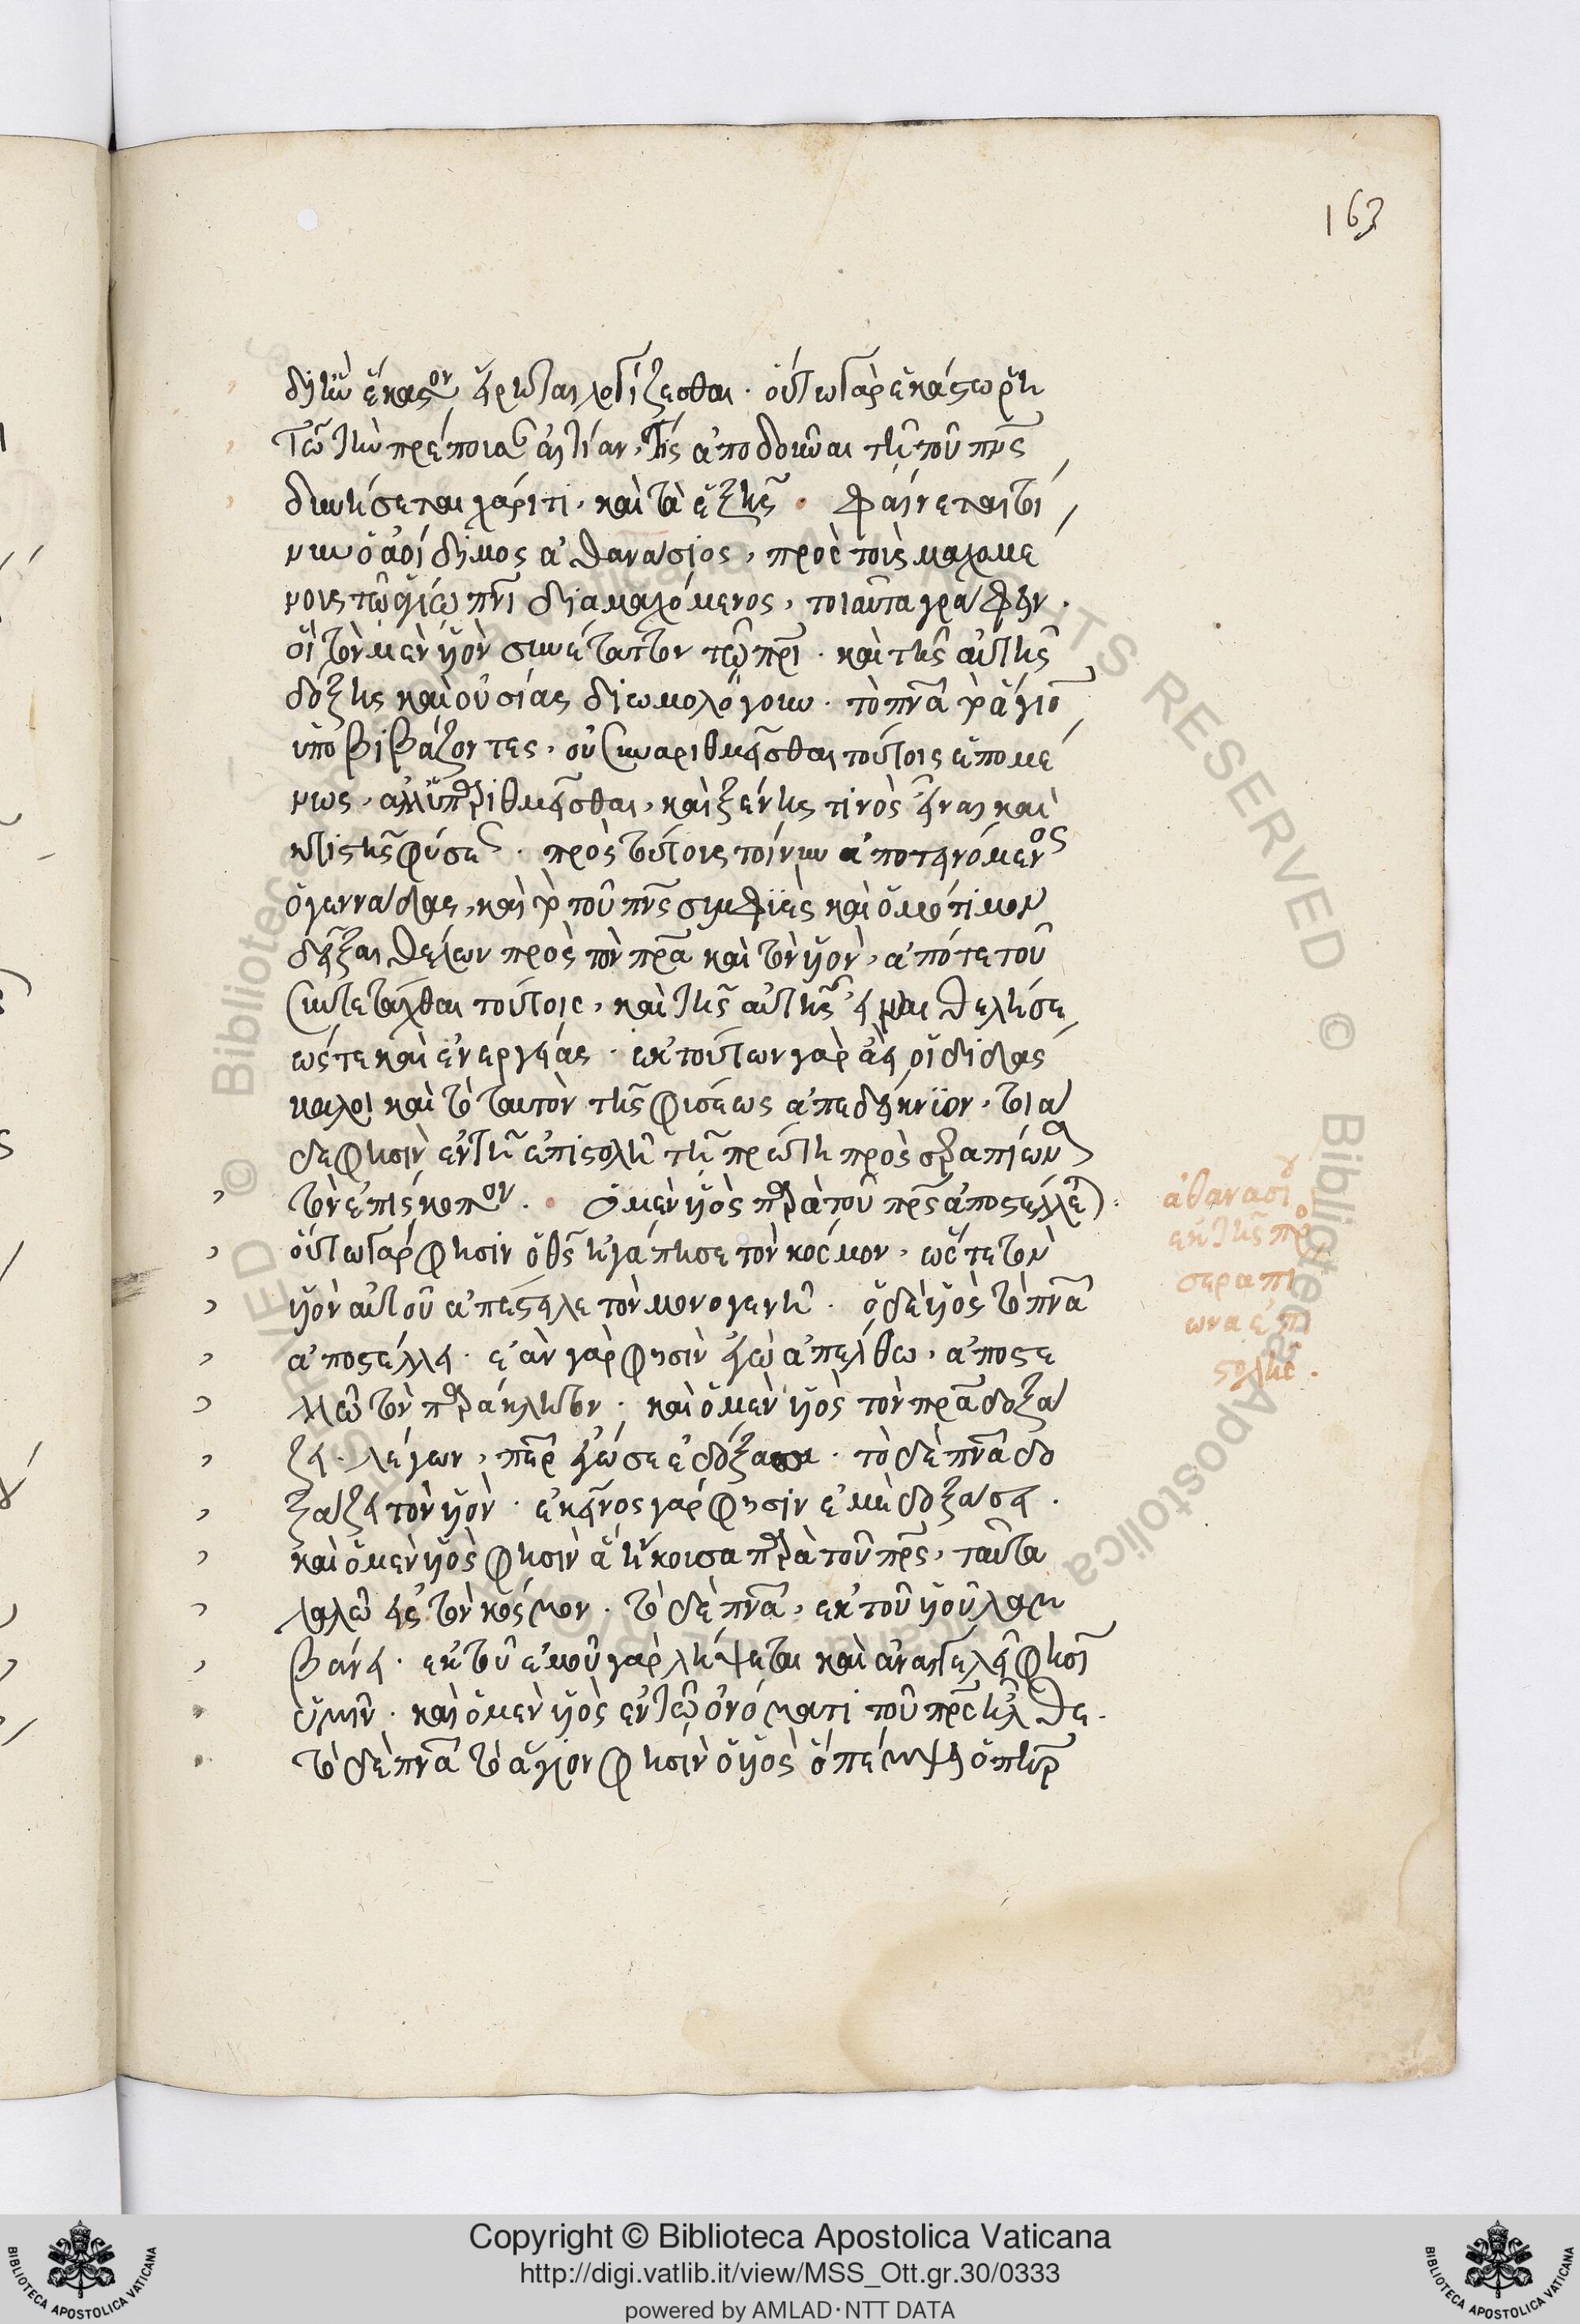 163
δι' ἣν ἕκαστον εἴρηται λογίζεσθαι · οὕτω γὰρ ἑκάστω ῥητῶ
τὴν πρέπουσαν αἰτίαν τὶς ἀποδοῦναι τῆ τοῦ πνς
δυνήσεται χάριτι, καὶ τὰ ἑξῆς · φαίνεται τοί
νυν ὁ ἀοίδιμος ἀθανάσιος, πρὸς τοὺς μαχομέ
νους τῶ ἁγίω πνι διαμαχόμενος, τοιαῦτα γράφειν ·
οἳ τὸν μὲν υἱὸν συνέταττον τῶ πρι · καὶ τῆς αὐτῆς
δόξης καὶ οὐσίας διωμολόγουν · τὸ πνα τὸ ἅγιον
ὑποβιβάζοντες, οὐ συναριθμεῖσθαι τούτοις ἑπομέ
νως, ἀλλ' ὑπαριθμεῖσθαι, καὶ ξένης τινὸς εἶναι καὶ
κτιστῆς φύσεως · πρὸς τούτους τοίνυν ἀποτεινόμενος
ὁ γεννάδας, καὶ τὸ τοῦ πνς συμφυὲς καὶ ὁμότιμον
δεῖξαι θέλων πρὸς τὸν πρα καὶ τὸν υἱὸν, ἀπό τε τοῦ
συντετάχθαι τούτοις, καὶ τῆς αὐτῆς εἶναι θελήσε
ώς τε καὶ ἐνεργείας · ἐκ τούτων γὰρ ἀεὶ οἱ διδάσ
καλοι καὶ τὸ ταυτὸν τῆς φύσεως ἀπεδείκνυον, τοιά
δε φησὶν ἐν τῆ ἐπιστολῆ τῆ πρώτη πρὸς σεραπίωνα
τὸν ἐπίσκοπον · ὁ μὲν υἱὸς παρὰ τοῦ πρς ἀποστέλλεται ·
οὕτω γάρ φησιν ὁ θς ἠγάπησε τὸν κόσμον, ὥστε τὸν
υἱὸν αὐτοῦ ἀπέστειλε τὸν μονογενῆ · ὁ δὲ υἱὸς τὸ πνα
ἀποστέλλει · ἐὰν γάρ φησιν ἐγὼ ἀπέλθω, ἀποστε
λῶ τὸν παράκλητον · καὶ ὁ μὲν υἱὸς τὸν πρα δοξά
ζει λέγων, περ ἐγώ σε ἐδόξασα · τὸ δὲ πνα δο
ξάζει τὸν υἱὸν · ἐκεῖνος γάρ φησιν ἐμὲ δοξάσει ·
καὶ ὁ μὲν υἱὸς φησὶν ἃ ἤκουσα παρὰ τοῦ πρς, ταῦτα
λαλῶ εἰς τὸν κόσμον · τὸ δὲ πνα, ἐκ τοῦ υἱοῦ λαμ
βάνει · ἐκ τοῦ ἐμοῦ γὰρ λήψεται καὶ ἀναγγελεῖ φησὶν
ὑμῖν · καὶ ὁ μὲν υἱὸς ἐν τῶ ὀνόματι τοῦ πρς ἦλθε ·
τὸ δὲ πνα τὸ ἅγιον φησὶν ὁ υἱὸς ὃ πέμψει ὁ πηρ
ἀθανασίου
ἐκ τῆς πρὸς
σεραπί
ωνα ἐπι
στολῆς ·
Copyright © Biblioteca Apostolica Vaticana
http://digi.vatlib.it/view/MSS_Ott.gr.30/0333
powered by AMLAD·NTT DATA
BIBLIOTECA APOSTOLICA VATICANA
BIBLIOTECA APOSTOLICA VATICANA